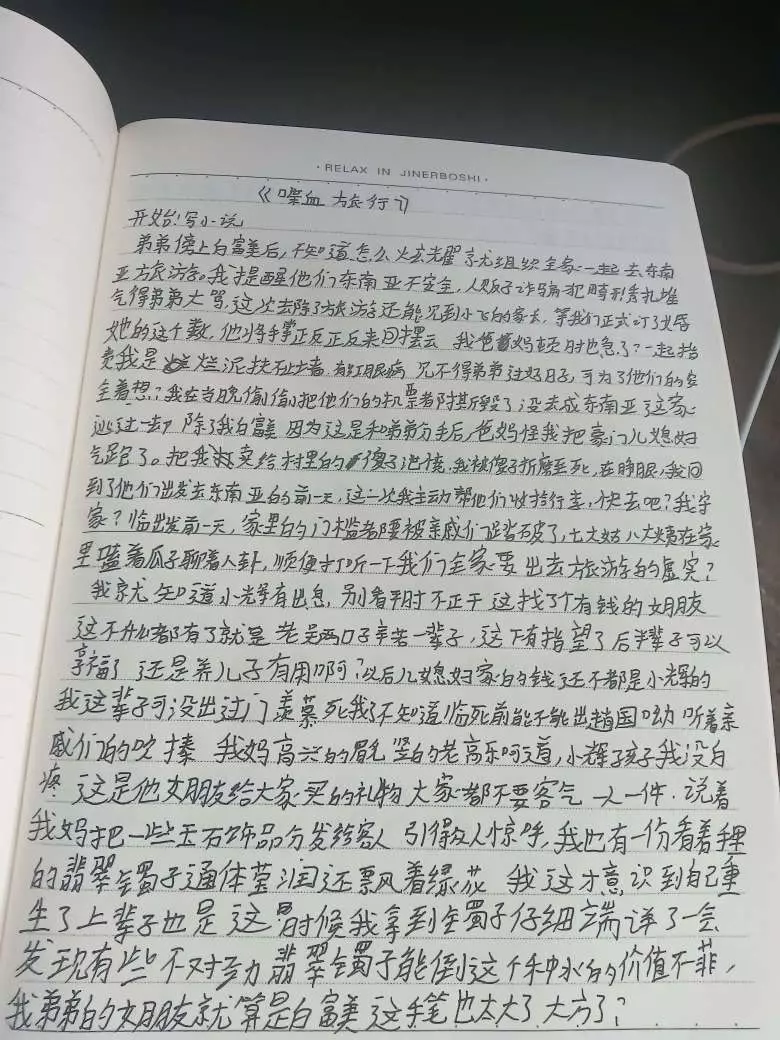 ·RELAX IN JINERBOSHI·
《喋血旅行》
开始!写小说
弟弟傍上白富美后,不知道怎么炫耀就组织全家一起去东南
亚旅游。我提醒他们东南亚不安全,人贩子诈骗犯畸形秀扎堆
气得弟弟大骂,这次去除了旅游还能见到小飞的家长,等我们正式订了婚
她的这个数,他将手掌正反正反来回摆云 我爸妈顿时也急了?一起指
责我是烂泥扶不上墙 有红眼病 见不得弟弟过好日子,可为了他们的安
全着想?我在当晚偷偷把他们的机票都撕毁了没去成东南亚这家
逃过一劫 除了我白富美因为这是和弟弟分手后,爸妈怪我把豪门儿媳妇
气跑了。把我卖给村里的傻子泄愤,我被傻子折磨至死,在睁眼,我回
到了他们出发去东南亚的前一天,这一次我主动帮他们收拾行李,快去吧?我守
家?临出发前一天,家里的门槛都要被亲戚们踏破了,七大姑八大姨在家
里嗑着瓜子聊着八卦,顺便打听一下我们全家要出去旅游的虚实?
我就知道小辉有出息,别看平时不正干 这找了个有钱的女朋友
这不什么都有了就是老吴两口子辛苦一辈子,这下有指望了后半辈子可以
享福了 还是养儿子有用啊?以后儿媳妇家的钱还不都是小辉的
我这辈子可没出过门羡慕死我了不知道临死前能不能出趟国呦 听着亲
戚们的吹捧 我妈高兴的 老高乐呵道,小辉孩子我没白
疼 这是他女朋友给大家买的礼物 大家都不要客气 一人一件.说着
我妈把一些玉石饰品分发给客人 引得众人惊呼,我也有一份看着手里
的翡翠镯子通体莹润还飘着绿花 我这才意识到自己重
生了上辈子也是这个时候我拿到镯子仔细端详了一会
发现有些不对劲 翡翠镯子能倒这个种水的价值不菲,
我弟弟的女朋友就算是白富美 这手笔也太大了 大方了?